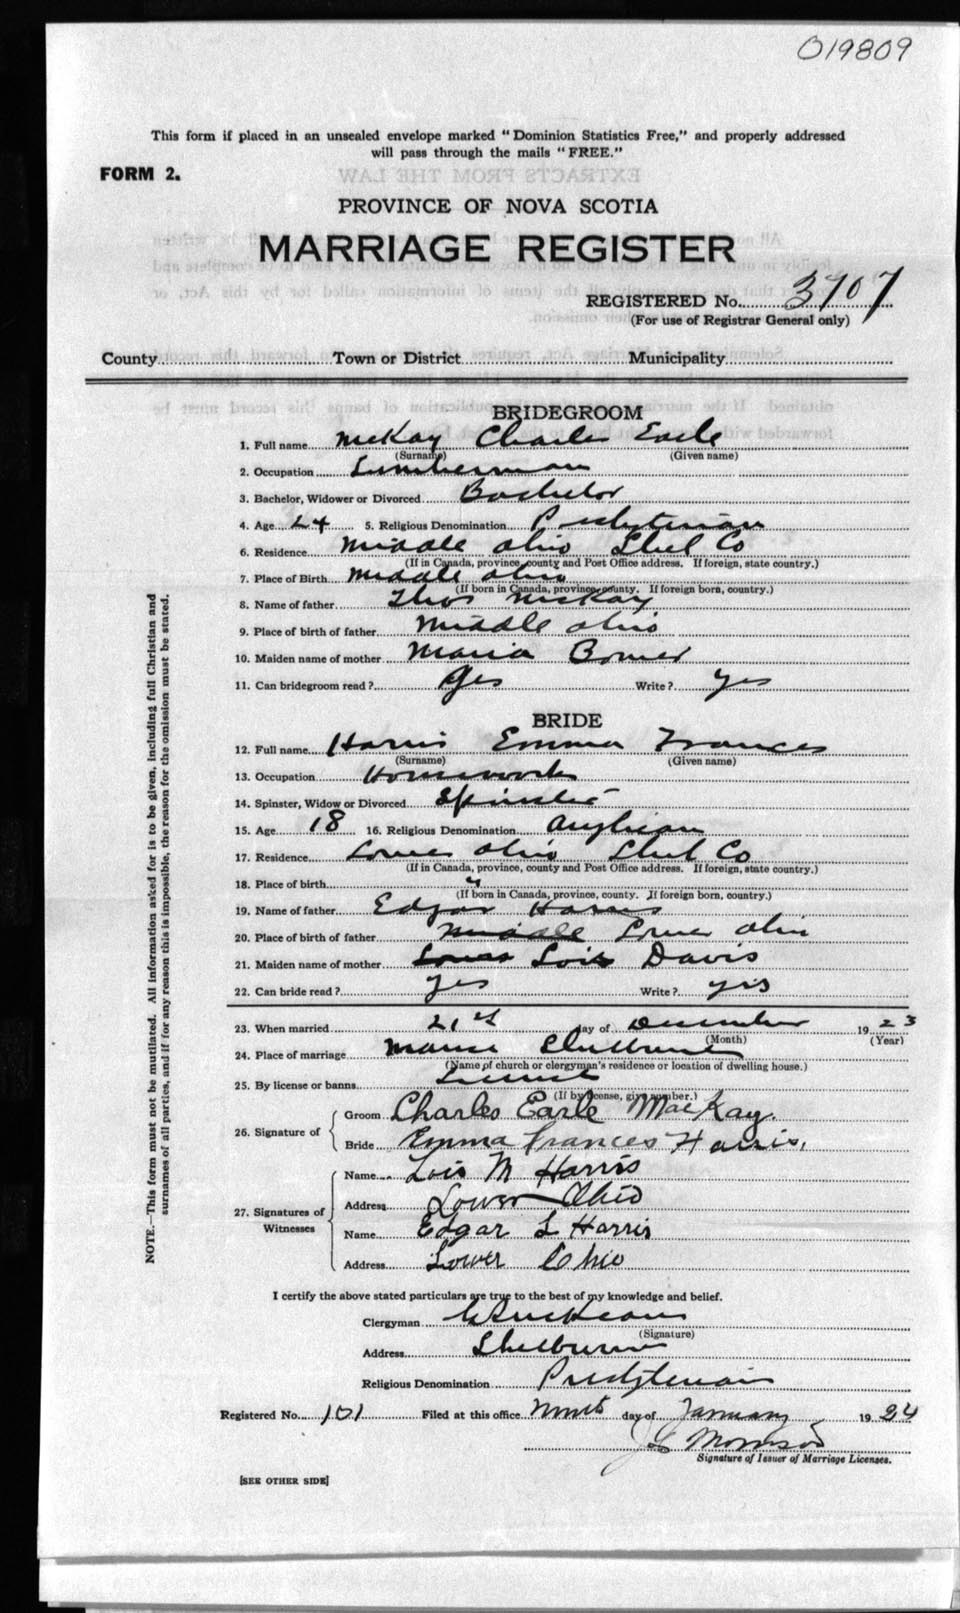 019809
This form if placed in an unsealed envelope marked "Dominion Statistics Free," and properly addressed
will pass through the mails "FREE."
FORM 2.
PROVINCE OF NOVA SCOTIA
MARRIAGE REGISTER
REGISTERED No. 3707
(For use of Registrar General only)
County Town or District Municipality
BRIDEGROOM
1. Full name McKay Charles Earle
(Surname) (Given name)
2. Occupation Lumberman
3. Bachelor, Widower or Divorced Bachelor
4. Age 24 5. Religious Denomination Presbyterian
6. Residence Middle Ohio Shel Co
(If in Canada, province, county and Post Office address. If foreign, state country.)
7. Place of Birth Middle Ohio
(If born in Canada, province, county. If foreign born, country.)
8. Name of father Thos McKay
9. Place of birth of father Middle Ohio
10. Maiden name of mother Maria Bower
11. Can bridegroom read? Yes Write? yes
BRIDE
12. Full name Harris Emma Frances
(Surname) (Given name)
13. Occupation Homework
14. Spinster, Widow or Divorced Spinster
15. Age 18 16. Religious Denomination Anglican
17. Residence Lower Ohio Shel Co
(If in Canada, province, county and Post Office address. If foreign, state country.)
18. Place of birth "
(If born in Canada, province, county. If foreign born, country.)
19. Name of father Edgar Harris
20. Place of birth of father Middle Lower Ohio
21. Maiden name of mother Lois Davis
22. Can bride read? yes Write? yes
23. When married 21st day of December 1923
(Month) (Year)
24. Place of marriage Manse Shelburne
(Name of church or clergyman's residence or location of dwelling house.)
25. By license or banns License
(If by license, give number.)
26. Signature of
Groom Charles Earle MacKay.
Bride Emma Frances Harris,
27. Signatures of Witnesses
Name Lois M Harris
Address Lower Ohio
Name Edgar L Harris
Address Lower Ohio
I certify the above stated particulars are true to the best of my knowledge and belief.
Clergyman
(Signature)
Address Shelburne
Religious Denomination Presbyterian
Registered No. 101 Filed at this office Ninth day of January 1924
Morrison
Signature of Issuer of Marriage Licenses.
[SEE OTHER SIDE]
NOTE.—This form must not be mutilated. All information asked for is to be given, including full Christian and
surnames of all parties, and if for any reason this is impossible, the reason for the omission must be stated.